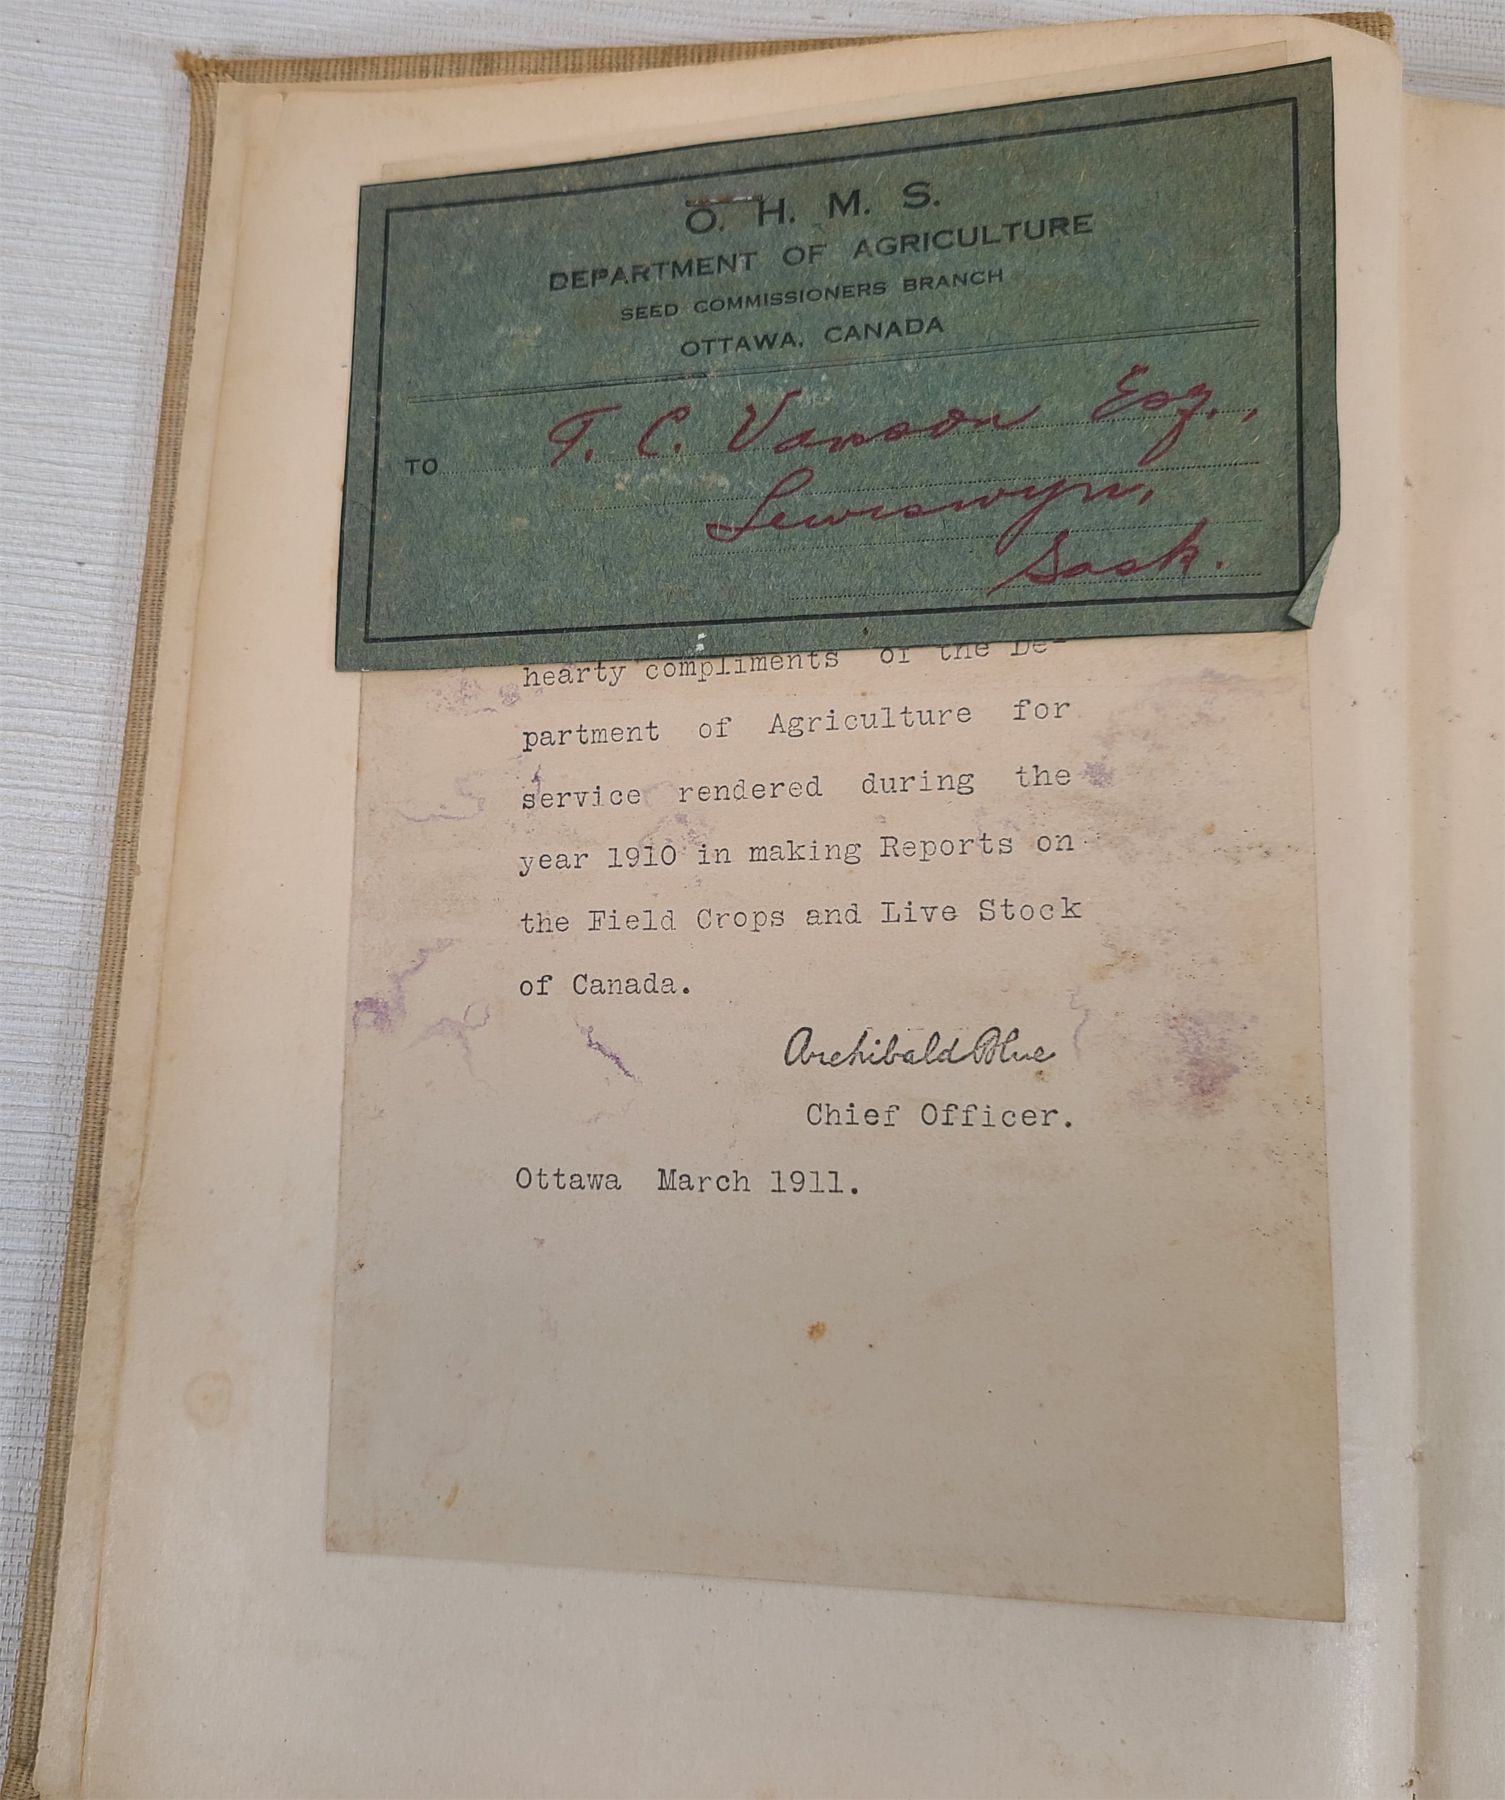 O. H. M. S.
DEPARTMENT OF AGRICULTURE
SEED COMMISSIONERS BRANCH
OTTAWA, CANADA
TO T. C. Vanson Esq.,
Lewiswyn,
Sask.
hearty compliments of the De-
partment of Agriculture for
service rendered during the
year 1910 in making Reports on
the Field Crops and Live Stock
of Canada.
Archibald Blue
Chief Officer.
Ottawa March 1911.